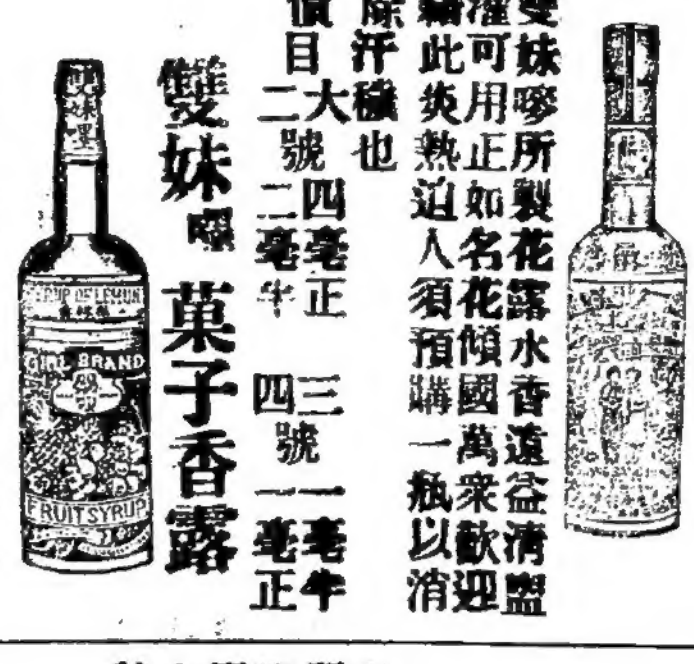 雙妹嘜所製花露水香遠益清盥
灌可用正如名花傾國萬衆歡迎
此炎熱迫人須預購一瓶以消
除汗穢也
價目
大 四毫正 三 一毫半
二號 二毫半 四號 一毫正
雙妹嘜
菓子香露
雙妹嘜
SYRUP OF LEMON
GIRL BRAND
FRUIT SYRUP